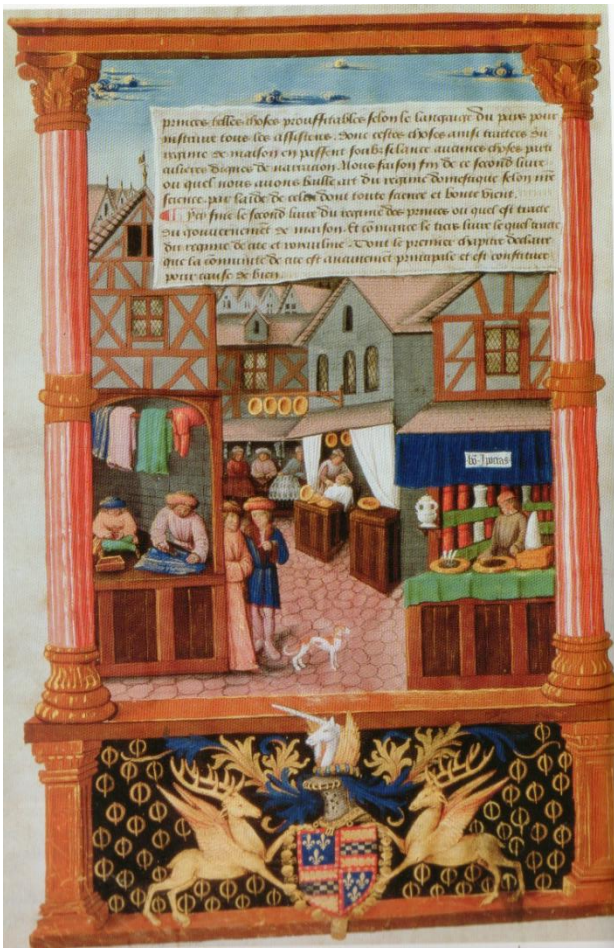 princes telles choses prouffitables selon le langaige du pays pour
instruire tous les assistens. donc cestes choses ainsi traictees du
regime de maison en passent soubz silence aucunes choses parti
culieres dignes de narration. Nous faison fin de ce second livre
ou quel nous avons baille art du regime domestique selon nre
science. par laide de celui dont toute science et bonte vient.
Icy finit le second livre du regime des princes ou quel est traicte
du gouvernement de maison. Et comance le tiers livre le quel traicte
du regime de cite et royaulme. Dont le premier chapitre declaire
que la comunite de cite est aucunement principale et est constituee
pour cause de bien.
bō ypocras